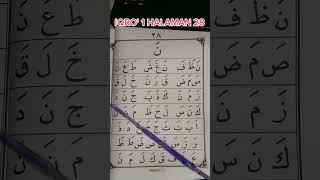 IQRO' 1 HALAMAN 28
٢٨
نَ
نَ ظَ فَ نَ غَ شَ طَ عَ نَ
صَ مَ ضَ قَ رَ نَ خَ لَ قَ
زَ مَ نَ كَ ذَ بَ جَ نَ دَ
كَ نَ سَ لَ حَ ظَ مَ نَ
اَ بَ تَ ثَ جَ حَ خَ دَ ذَ
رَ زَ سَ شَ صَ ضَ طَ ظَ
عَ غَ فَ قَ كَ لَ مَ نَ